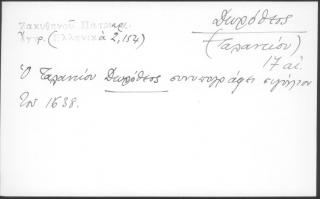 Ζακυθηνοῦ Πατριαρ.
Ἔγγρ. (Ἑλληνικά 2, 154)
Δωρόθεος
(Ταραντίου)
17 αἰ.
Ὁ Ταραντίου Δωρόθεος συνυπογράφει σιγίλλιον
τοῦ 1638.